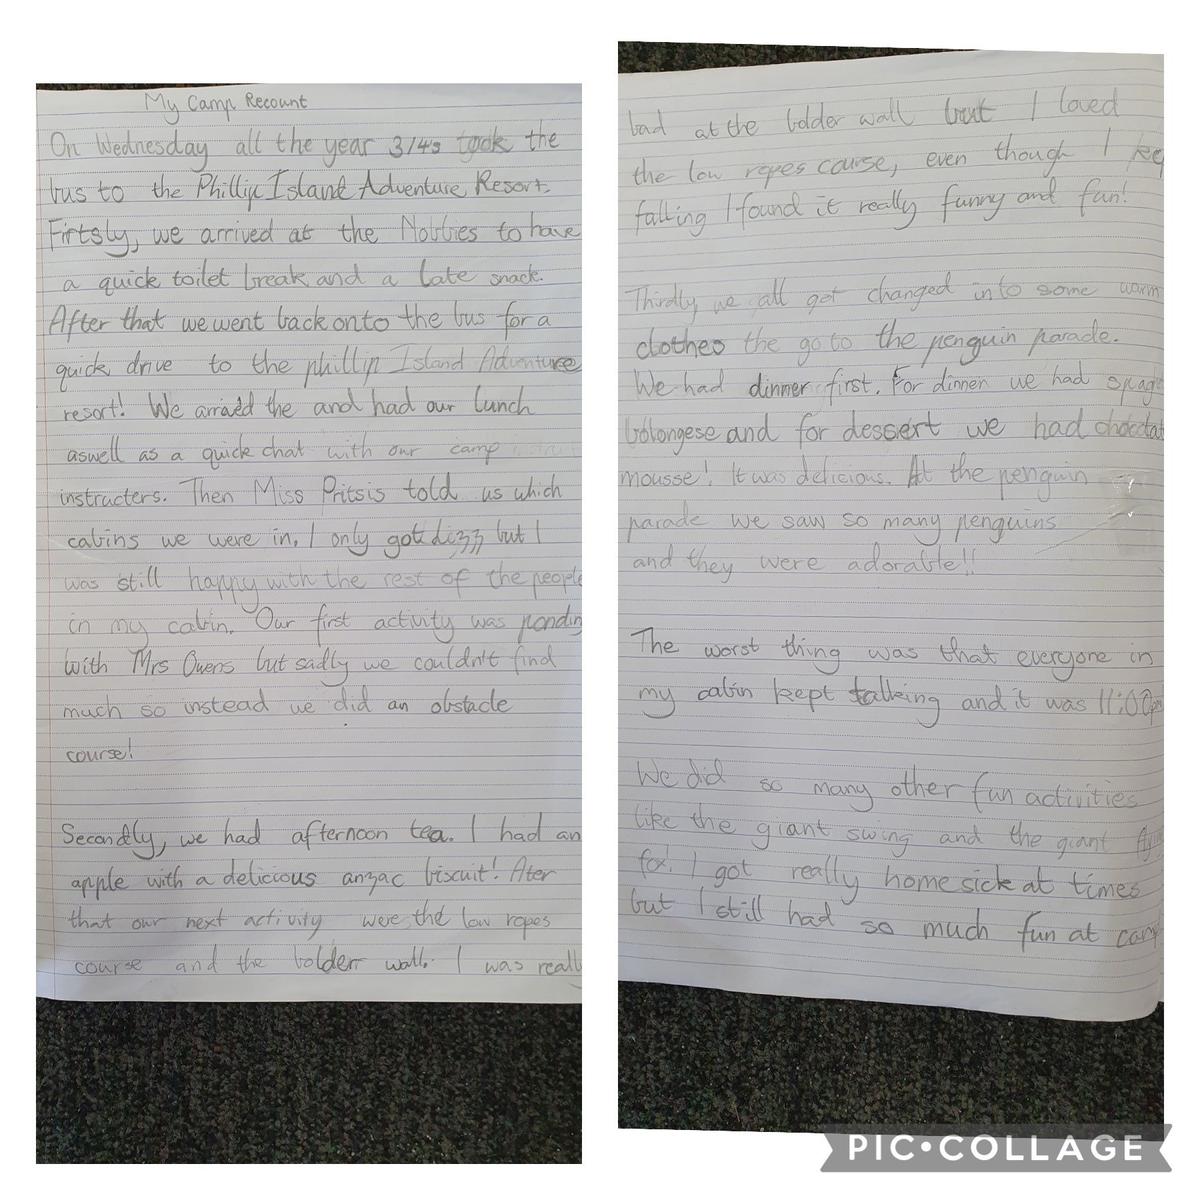 My Camp Recount
On Wednesday all the year 3/4s took the
bus to the Phillip Island Adventure Resort.
Firtsly, we arrived at the Nobbies to have
a quick toilet break and a late snack.
After that we went back onto the bus for a
quick drive to the phillip Island Adventure
resort! We arrived the and had our lunch
aswell as a quick chat with our camp
instructers. Then Miss Pritsis told us which
cabins we were in, I only got dizz but I
was still happy with the rest of the people
in my cabin. Our first activity was ponding
with Mrs Owens but sadly we couldn't find
much so instead we did an obstacle
course!
Secondly, we had afternoon tea. I had an
apple with a delicious anzac biscuit! Ater
that our next activity were the low ropes
course and the bolder wall. I was really
bad at the bolder wall but I loved
the low ropes course, even though I
falling I found it really funny and fun!
Thirdly we all got changed into some warm
clothes the go to the penguin parade.
We had dinner first. For dinner we had spag
bolongese and for dessert we had chocolat
mousse! It was delicious. At the penguin
parade we saw so many penguins
and they were adorable!!
The worst thing was that everyone in
my cabin kept talking and it was 11:00pm
We did so many other fun activities
like the giant swing and the giant
fox! I got really homesick at times
but I still had so much fun at camp
PIC•COLLAGE